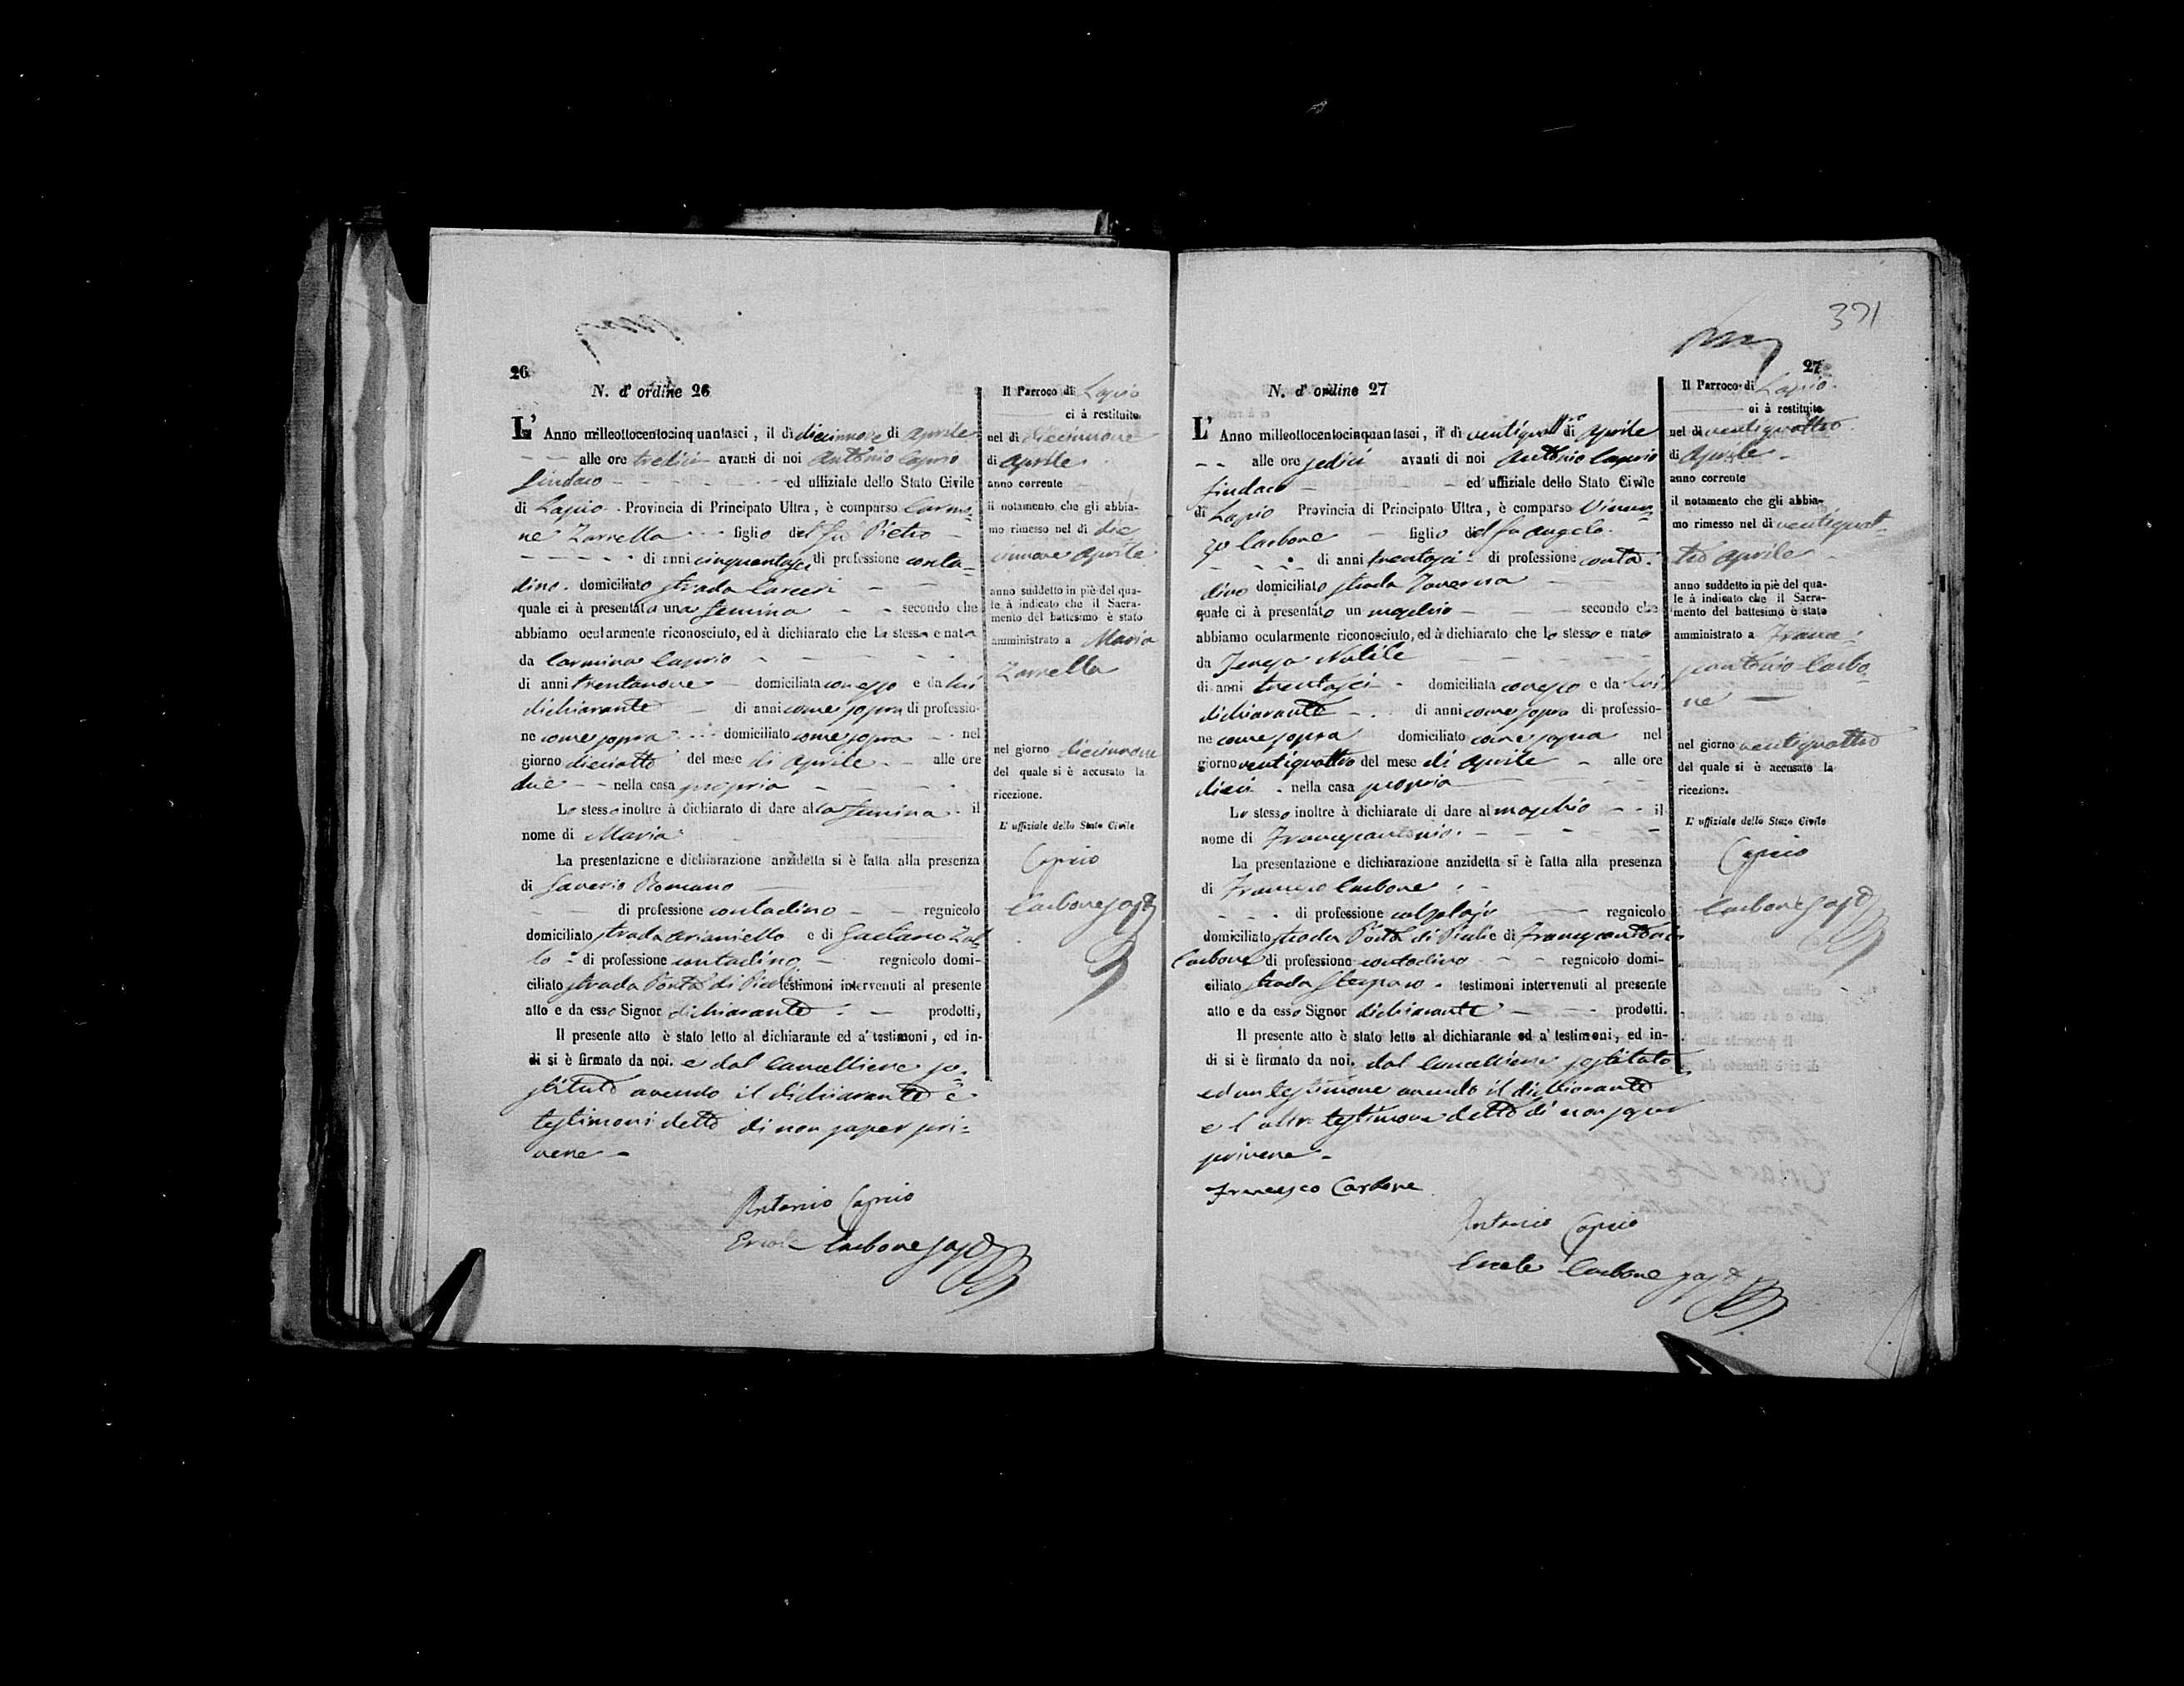 26
N. d' ordine 26
L' Anno milleottocentocinquantasei, il dì diecinnove di Aprile
alle ore tredici avanti di noi Antonio Caprio
Sindaco ed uffiziale dello Stato Civile
di Lapio Provincia di Principato Ultra, è comparso Carmi-
ne Zarrella figlio del fu Pietro
di anni cinquantasei di professione conta-
dino domiciliato strada Carceri
quale ci à presentato una femina secondo che
abbiamo ocularmente riconosciuto, ed à dichiarato che la stessa e nata
da Carmina Caprio
di anni trentanove domiciliata con esso e da lui
dichiarante di anni come sopra di professio-
ne come sopra domiciliato come sopra nel
giorno dieciotto del mese di Aprile alle ore
due nella casa propria
Lo stesso inoltre à dichiarato di dare alla femina il
nome di Maria
La presentazione e dichiarazione anzidetta si è fatta alla presenza
di Saverio Romano
di professione contadino regnicolo
domiciliato strada Arianiello e di Gaetano Zol-
lo di professione contadino regnicolo domi-
ciliato strada Porta di testimoni intervenuti al presente
atto e da esso Signor dichiarante prodotti,
Il presente atto è stato letto al dichiarante ed a' testimoni, ed in-
di si è firmato da noi, e dal Cancelliere so-
stituto avendo il dichiarante e
testimoni detto di non saper scri-
vere
Antonio Caprio
Ercole Carbone sost
Il Parroco di Lapio
ci à restituito
nel dì diecinnove
di Aprile
anno corrente
il notamento che gli abbia-
mo rimesso nel dì die
cinnove Aprile
anno suddetto in piè del qua-
le à indicato che il Sacra-
mento del battesimo è stato
amministrato a Maria
Zarrella
nel giorno diecinnove
del quale si è accusato la
ricezione.
L' uffiziale dello Stato Civile
Caprio
Carbone sost
371
27
N. d' ordine 27
L' Anno milleottocentocinquantasei, il dì ventiquattro di Aprile
alle ore sedici avanti di noi Antonio Caprio
Sindaco ed uffiziale dello Stato Civile
di Lapio Provincia di Principato Ultra, è comparso Vincen-
zo Carbone figlio del fu Angelo
di anni trentasei di professione conta-
dino domiciliato strada Taverna
quale ci à presentato un maschio secondo che
abbiamo ocularmente riconosciuto, ed à dichiarato che lo stesso e nato
da Teresa Nutile
di anni trentasei domiciliata con esso e da lui
dichiarante di anni come sopra di professio-
ne come sopra domiciliato come sopra nel
giorno ventiquattro del mese di Aprile alle ore
dieci nella casa propria
Lo stesso inoltre à dichiarato di dare al maschio il
nome di Francescantonio
La presentazione e dichiarazione anzidetta si è fatta alla presenza
di Francesco Carbone
di professione calzolajo regnicolo
domiciliato strada Porta di e di Francescantonio
Carbone di professione contadino regnicolo domi-
ciliato strada testimoni intervenuti al presente
atto e da esso Signor dichiarante prodotti.
Il presente atto è stato letto al dichiarante ed a' testimoni, ed in-
di si è firmato da noi, dal Cancelliere sostituto
ed un testimone avendo il dichiarante
e l'altro testimone detto di non saper
scrivere
Francesco Carbone
Antonio Caprio
Ercole Carbone sost
Il Parroco di Lapio
ci à restituito
nel dì ventiquattro
di Aprile
anno corrente
il notamento che gli abbia-
mo rimesso nel dì ventiquat-
tro Aprile
anno suddetto in piè del qua-
le à indicato che il Sacra-
mento del battesimo è stato
amministrato a France-
scantonio Carbo-
ne
nel giorno ventiquattro
del quale si è accusato la
ricezione.
L' uffiziale dello Stato Civile
Caprio
Carbone sost